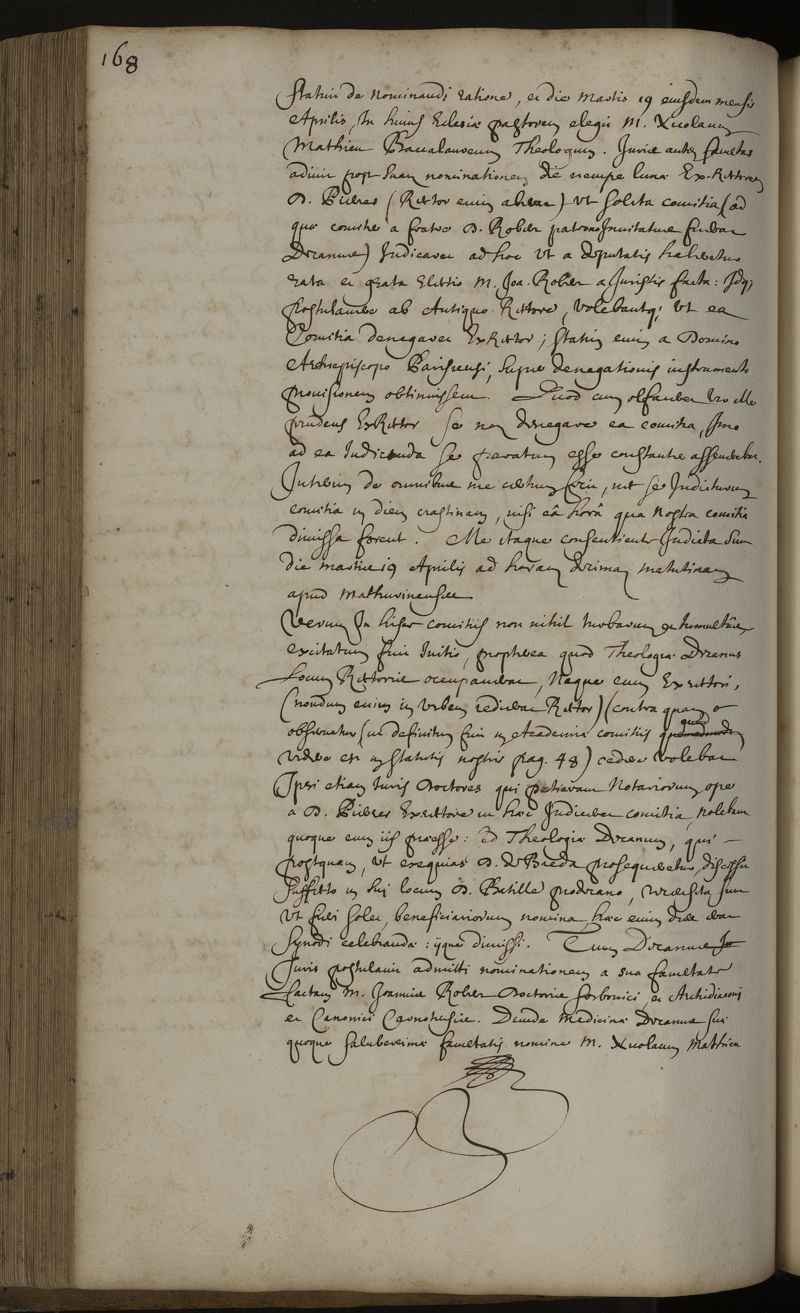 168
statuit de Nominandi ratione, et die Martis 19 eiusdem mensis
Aprilis, In huius Eclesiæ pastorem elegit M. Nicolaum
Mathieu Baccalaureum Theologum. Iuris autem facultas
adiuit post suam nominationem die nempe lunæ Ex-Rectorem
D. Pieres (Rector enim aberat) ut solita comitia (ad
quæ comiter a fratre D. Rober patrono Inuitatur fuerat
Decanus) Indicaret ad hoc ut a deputatis haberetur
rata et grata Electio M. Joa. Rober a Iuristis facta: Idq;
postulauere ab Antiquo Rectore, volebantq; ut ea
Comitia denegaret ExRector; statim enim a Domino
Archiepiscopo Parisiensi, super denegationis instrumento
prouisionem obtinuissent. Quod cum olfaceret vir ille
prudens ExRector se non denegare ea comitia, Imo
ad ea Indicenda se paratum esse constanter asseuerabat.
Interim de omnibus me certum fecit, nec se Indicturum
comitia in diem crastinam, nisi eâ horâ qua nostra comitia
dimissa forent. Me itaque consentiente Indicta sunt
die martis 19 Aprilis ad horam decimam matutinam
apud Mathurinenses
Verum In hisce comitiis non nihil turbarum et tumultûs
excitatum fuit Initio, propterea quod Theologiæ Decanus
Locum Rectoris occupauerat, Neque enim Exrectori,
(nondum enim in urbem redierat Rector) (contra quam
obseruatur (ut definitum fuit in Academiæ comitiis quod
videre est in statutis nostris pag. 48) cedere volebat
Ipsi etiam Iuris Doctores qui petierant Notariorum ope
a D. Pieres Exrectore ut hæc Indiceret comitia, nolebant
quoque eum iis præesse: sed Theologiæ Decanum, qui
postquam, ut exequias D. de Breda prosequeretur, discessit
suffecto in sui locum D. Bitille prodecano, recensita sunt
Ut fieri solet, beneficiariorum nomina, hæc enim dies erat
Synodi celebrandæ: iique dimissi. Tum Decanus
Iuris postulauit admitti nominationem a sua facultate
factam M. Joannis Rober Doctoris Sorbonici, et Archidiaconi
et Canonici Carnotensis. Deinde Medicinæ Decanus sui
quoque saluberrimæ facultatis nomine M. Nicolaum Mathieu